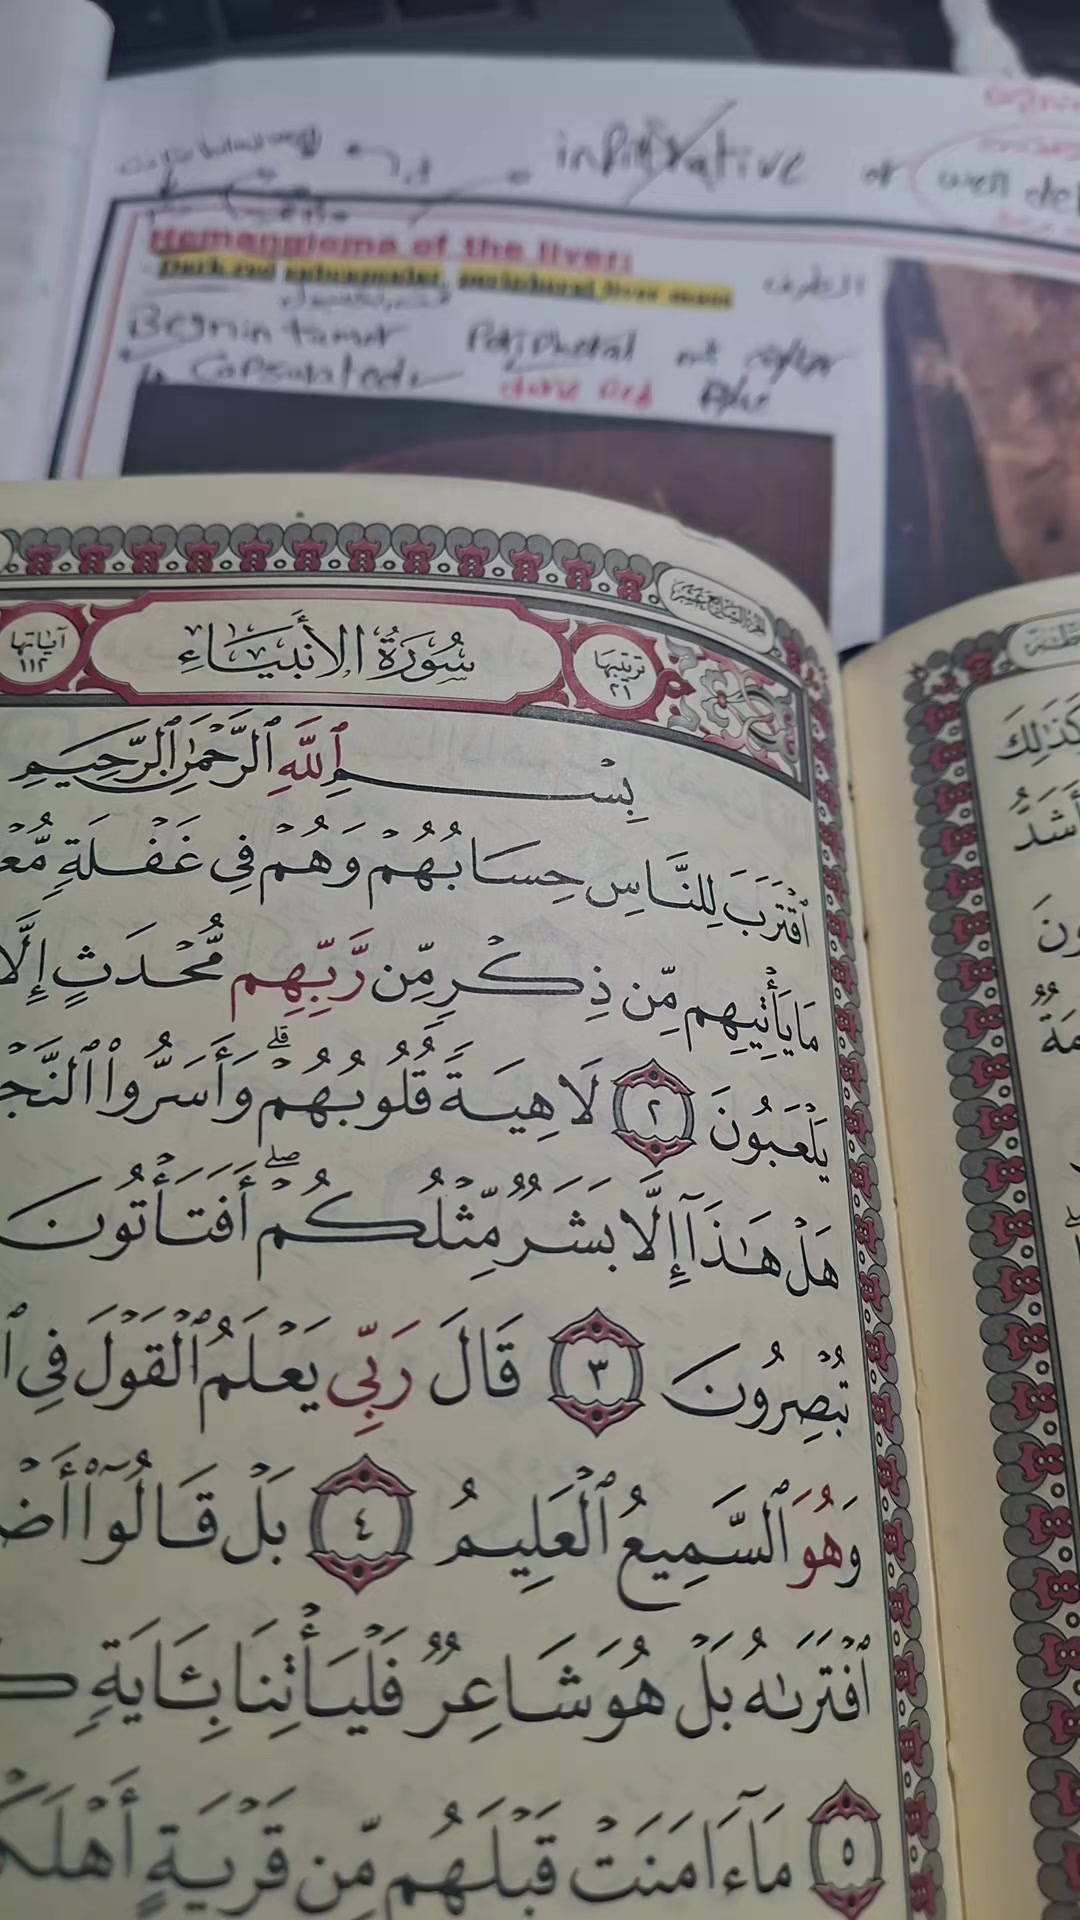 infiltrative or well def
Hemangioma of the liver:
Dark red subcapsular, peripheral liver mass
الطرف
Begnin tumor Peripheral not
Capsulated dark Red
الجزء السابع عشر
سُورَةُ الأَنبِيَاءِ
ترتيبها ٢١
آياتها ١١٢
بِسْمِ ٱللَّهِ ٱلرَّحْمَٰنِ ٱلرَّحِيمِ
ٱقْتَرَبَ لِلنَّاسِ حِسَابُهُمْ وَهُمْ فِى غَفْلَةٍ مُّعْ
مَا يَأْتِيهِم مِّن ذِكْرٍ مِّن رَّبِّهِم مُّحْدَثٍ إِلَّا
يَلْعَبُونَ ٢ لَاهِيَةً قُلُوبُهُمْ ۗ وَأَسَرُّوا۟ ٱلنَّجْ
هَلْ هَٰذَآ إِلَّا بَشَرٌ مِّثْلُكُمْ ۖ أَفَتَأْتُونَ
تُبْصِرُونَ ٣ قَالَ رَبِّى يَعْلَمُ ٱلْقَوْلَ فِى ٱ
وَهُوَ ٱلسَّمِيعُ ٱلْعَلِيمُ ٤ بَلْ قَالُوٓا۟ أَضْ
ٱفْتَرَىٰهُ بَلْ هُوَ شَاعِرٌ فَلْيَأْتِنَا بِـَٔايَةٍ كَ
٥ مَآ ءَامَنَتْ قَبْلَهُم مِّن قَرْيَةٍ أَهْلَكْ
كَذَٰلِكَ
أَشَدُّ